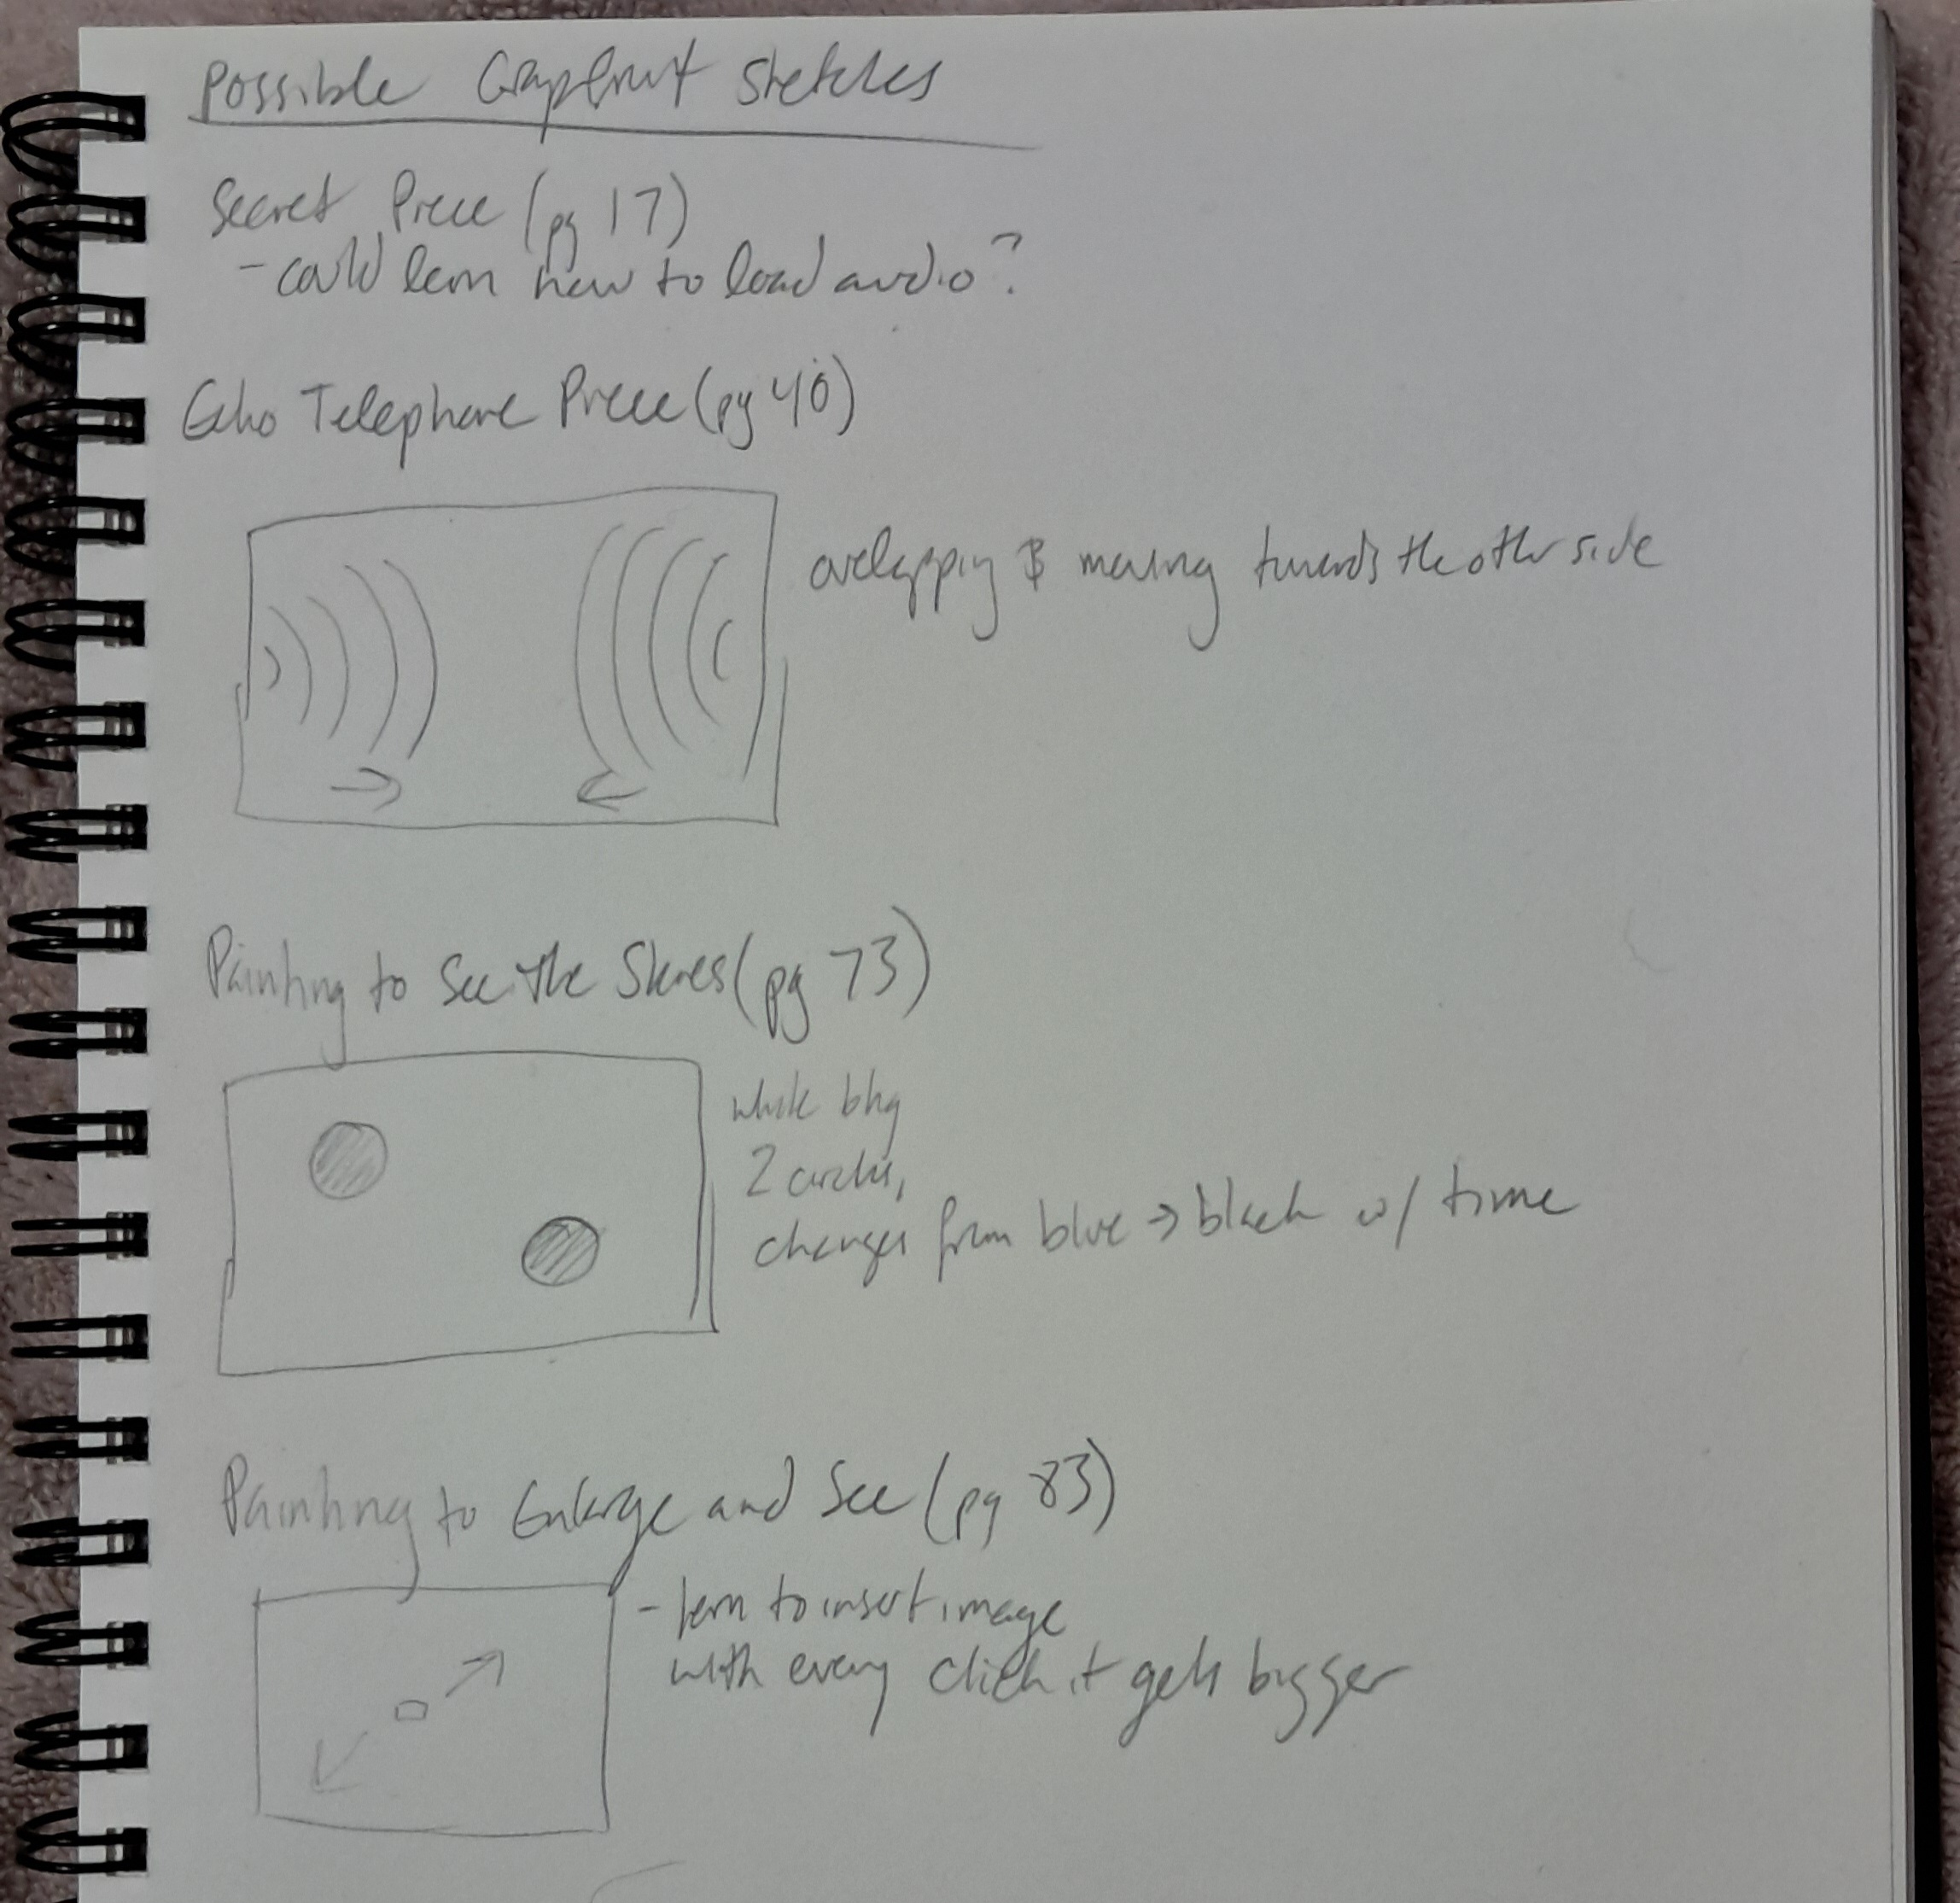 Possible Grapefruit Sketches
Secret Piece (pg 17)
- could learn how to load audio?
Echo Telephone Piece (pg 40)
overlapping & moving towards the other side
Painting to See the Skies (pg 73)
white bkg
2 circles,
changes from blue → black w/ time
Painting to Enlarge and See (pg 83)
- learn to insert image
with every click it gets bigger